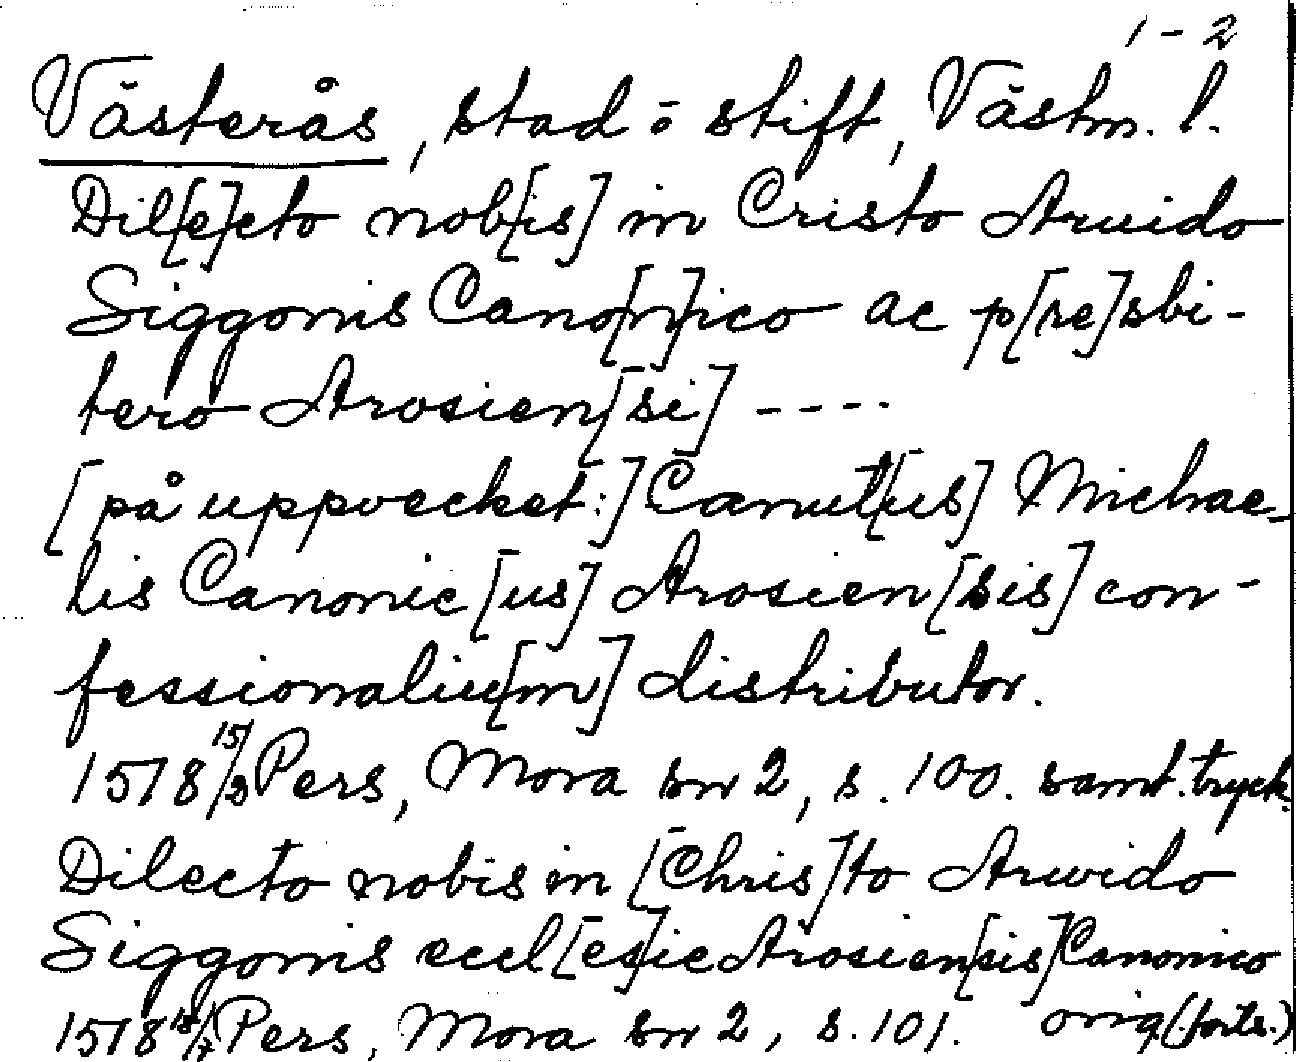 1-2
Västerås, stad o stift, Västm. l.
Dil[e]cto nob[is] in Cristo Arvido
Siggonis Cano[n]ico ac p[re]sbi-
tero Arosien[si] ----
[på uppvecket:] Canut[us] Michae-
lis Canonic[us] Arosien[sis] con-
fessionaliu[m] distributor.
1518 15/3 Pers, Mora sn 2, s. 100. samt. tryck.
Dilecto nobis in [Chris]to Arvido
Siggonis eccl[es]ie Arosien[sis] Canonico
1518 Pers, Mora sn 2, s. 101. orig. (forts.)